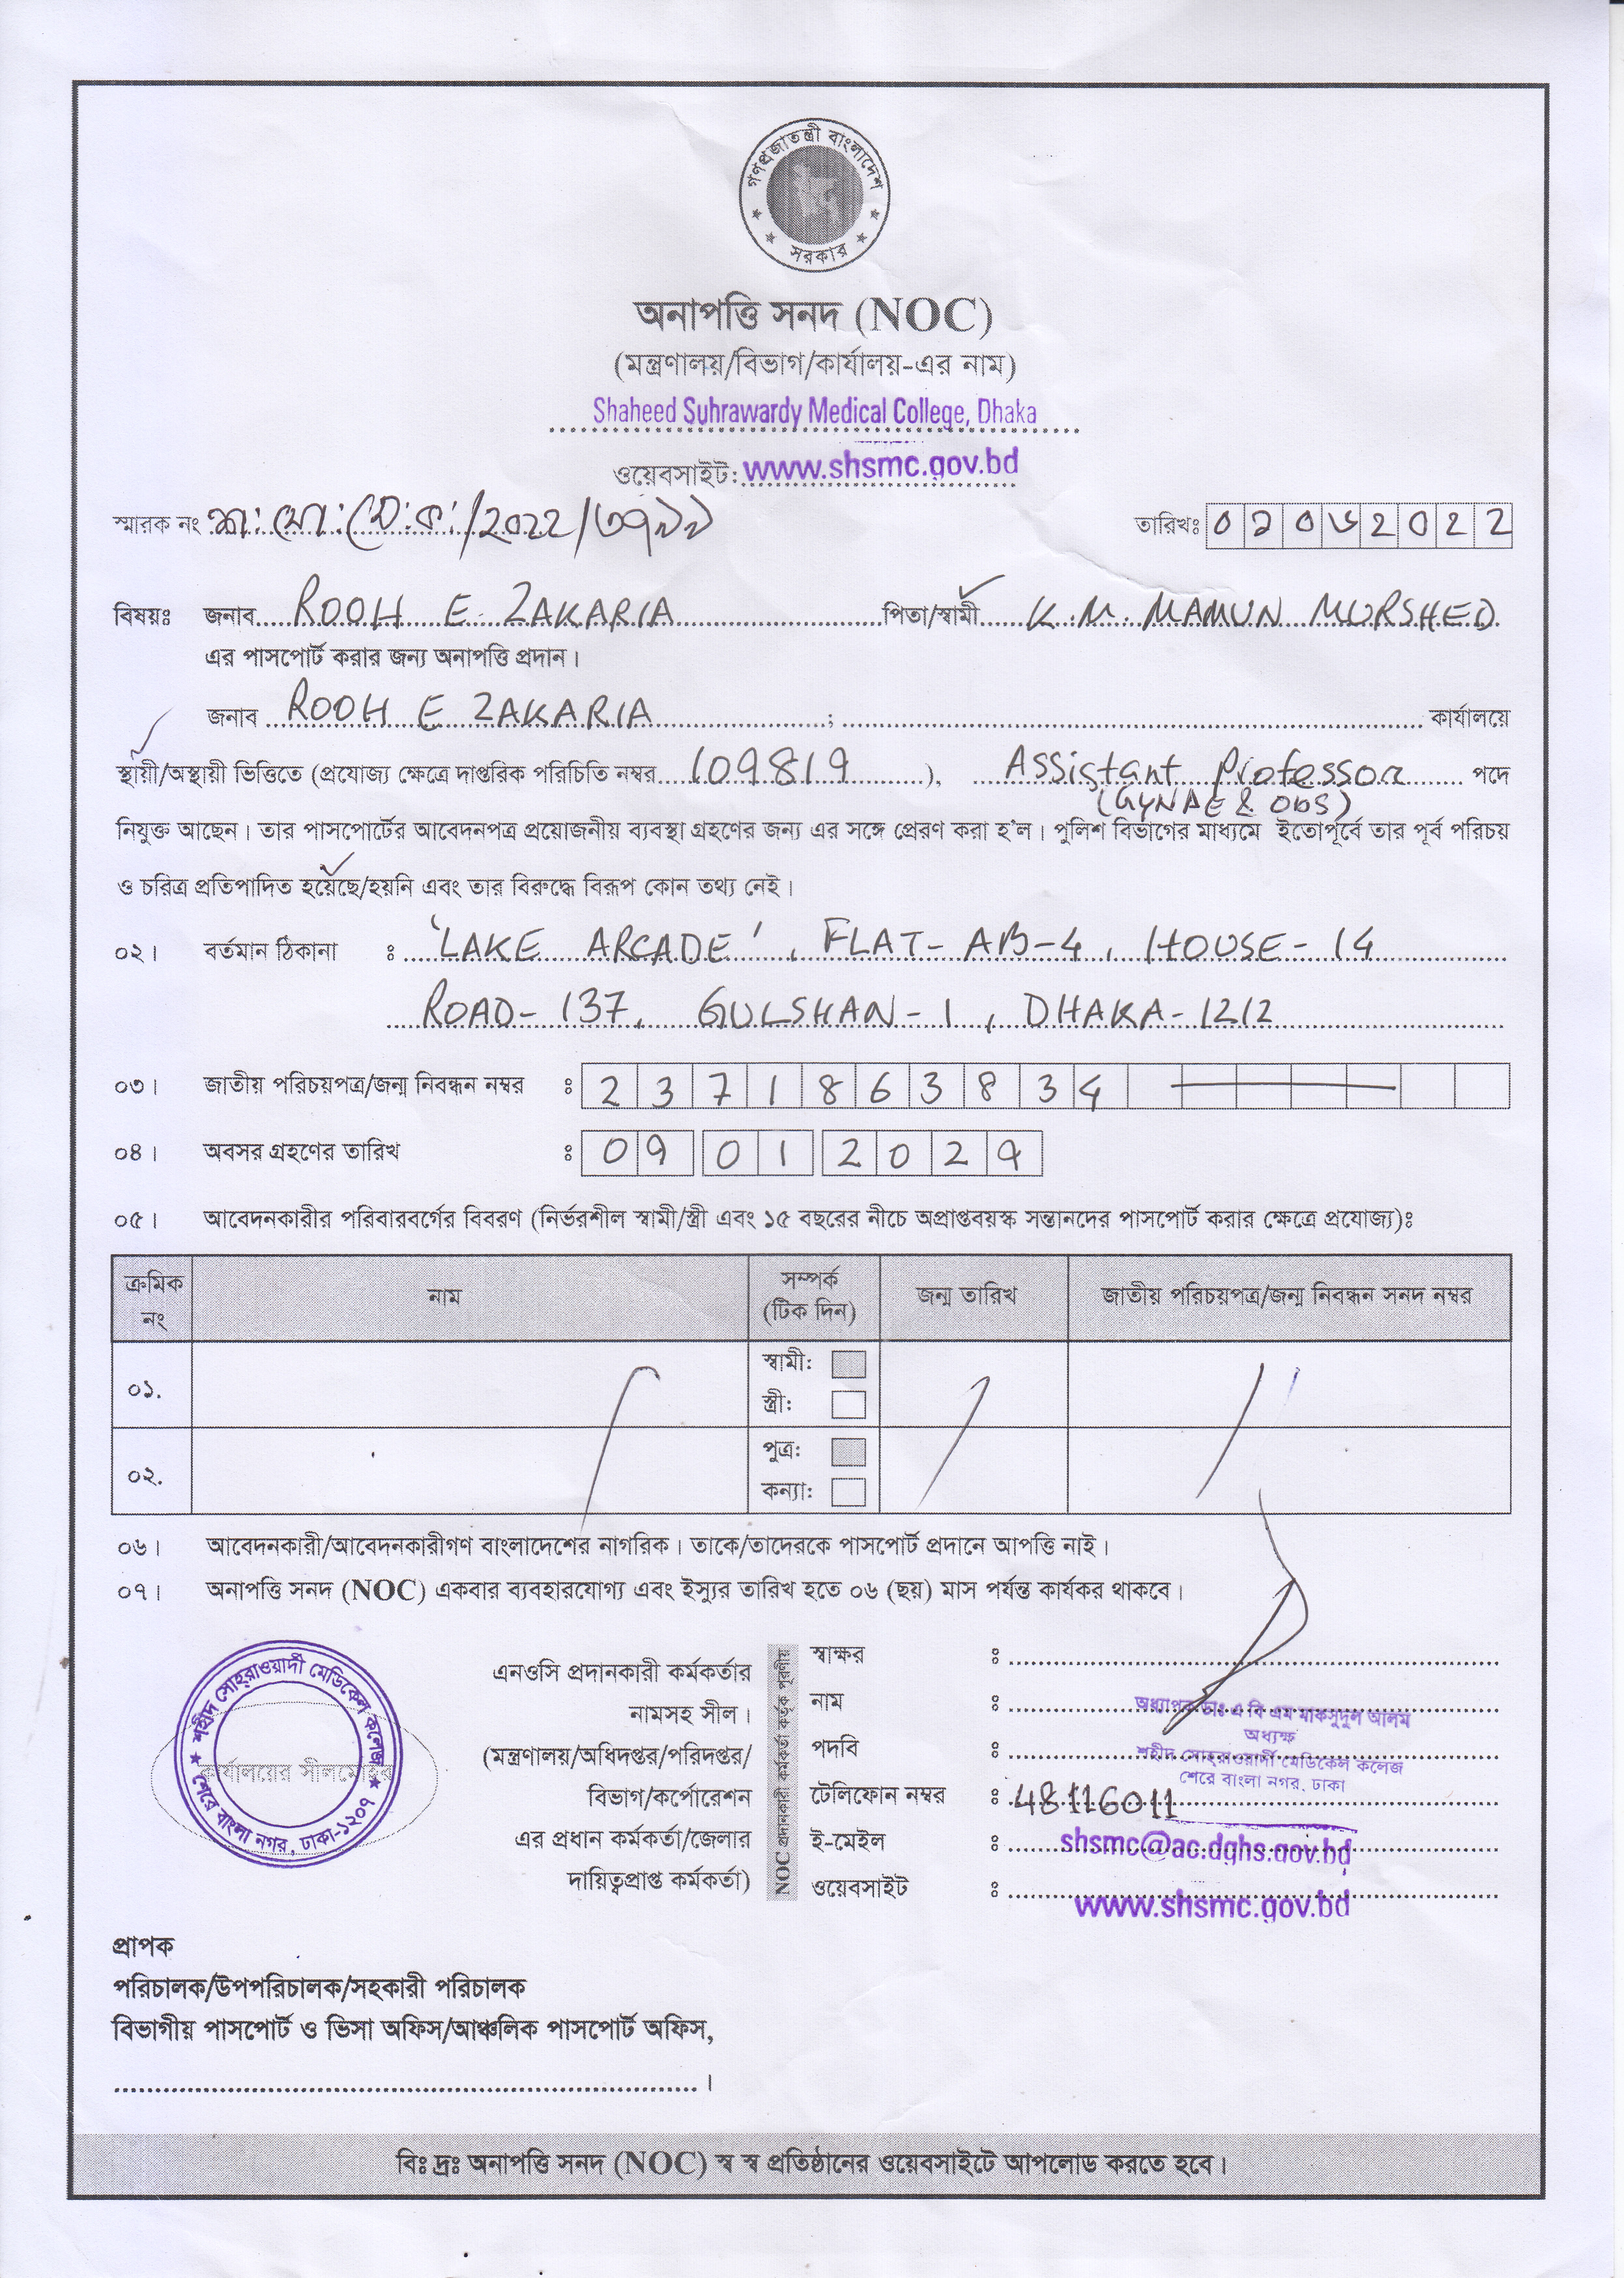 গণপ্রজাতন্ত্রী বাংলাদেশ
সরকার
অনাপত্তি সনদ (NOC)
(মন্ত্রণালয়/বিভাগ/কার্যালয়-এর নাম)
Shaheed Suhrawardy Medical College, Dhaka
ওয়েবসাইট: www.shsmc.gov.bd
স্মারক নং /2022/ তারিখঃ
বিষয়ঃ জনাব ROOH E ZAKARIA পিতা/স্বামী K.M. MAMUN MURSHED
এর পাসপোর্ট করার জন্য অনাপত্তি প্রদান।
জনাব ROOH E ZAKARIA ; কার্যালয়ে
স্থায়ী/অস্থায়ী ভিত্তিতে (প্রযোজ্য ক্ষেত্রে দাপ্তরিক পরিচিতি নম্বর 109819 ), Assistant Professor পদে
(GYNAE & Obs)
নিযুক্ত আছেন। তার পাসপোর্টের আবেদনপত্র প্রয়োজনীয় ব্যবস্থা গ্রহণের জন্য এর সঙ্গে প্রেরণ করা হ'ল। পুলিশ বিভাগের মাধ্যমে ইতোপূর্বে তার পূর্ব পরিচয়
ও চরিত্র প্রতিপাদিত হয়েছে/হয়নি এবং তার বিরুদ্ধে বিরূপ কোন তথ্য নেই।
০২। বর্তমান ঠিকানা ঃ 'LAKE ARCADE', FLAT- AB-4, HOUSE- 14
ROAD- 137, GULSHAN - 1, DHAKA- 1212
০৩। জাতীয় পরিচয়পত্র/জন্ম নিবন্ধন নম্বর ঃ 2371863834
০৪। অবসর গ্রহণের তারিখ ঃ 09 01 2029
০৫। আবেদনকারীর পরিবারবর্গের বিবরণ (নির্ভরশীল স্বামী/স্ত্রী এবং ১৫ বছরের নীচে অপ্রাপ্তবয়স্ক সন্তানদের পাসপোর্ট করার ক্ষেত্রে প্রযোজ্য)ঃ
ক্রমিক নং নাম সম্পর্ক (টিক দিন) জন্ম তারিখ জাতীয় পরিচয়পত্র/জন্ম নিবন্ধন সনদ নম্বর
০১. স্বামী:
স্ত্রী:
০২. পুত্র:
কন্যা:
০৬। আবেদনকারী/আবেদনকারীগণ বাংলাদেশের নাগরিক। তাকে/তাদেরকে পাসপোর্ট প্রদানে আপত্তি নাই।
০৭। অনাপত্তি সনদ (NOC) একবার ব্যবহারযোগ্য এবং ইস্যুর তারিখ হতে ০৬ (ছয়) মাস পর্যন্ত কার্যকর থাকবে।
শহীদ সোহ্‌রাওয়ার্দী মেডিকেল কলেজ
শেরে বাংলা নগর, ঢাকা-১২০৭
কার্যালয়ের সীলমোহর
এনওসি প্রদানকারী কর্মকর্তার
নামসহ সীল।
(মন্ত্রণালয়/অধিদপ্তর/পরিদপ্তর/
বিভাগ/কর্পোরেশন
এর প্রধান কর্মকর্তা/জেলার
দায়িত্বপ্রাপ্ত কর্মকর্তা)
NOC প্রদানকারী কর্মকর্তা কর্তৃক পূরণীয়
স্বাক্ষর ঃ
নাম ঃ অধ্যাপক ডাঃ এ বি এম মাকসুদুল আলম
অধ্যক্ষ
পদবি ঃ শহীদ সোহ্‌রাওয়ার্দী মেডিকেল কলেজ
শেরে বাংলা নগর, ঢাকা
টেলিফোন নম্বর ঃ 48116011
ই-মেইল ঃ shsmc@ac.dghs.gov.bd
ওয়েবসাইট ঃ www.shsmc.gov.bd
প্রাপক
পরিচালক/উপপরিচালক/সহকারী পরিচালক
বিভাগীয় পাসপোর্ট ও ভিসা অফিস/আঞ্চলিক পাসপোর্ট অফিস,
।
বিঃ দ্রঃ অনাপত্তি সনদ (NOC) স্ব স্ব প্রতিষ্ঠানের ওয়েবসাইটে আপলোড করতে হবে।